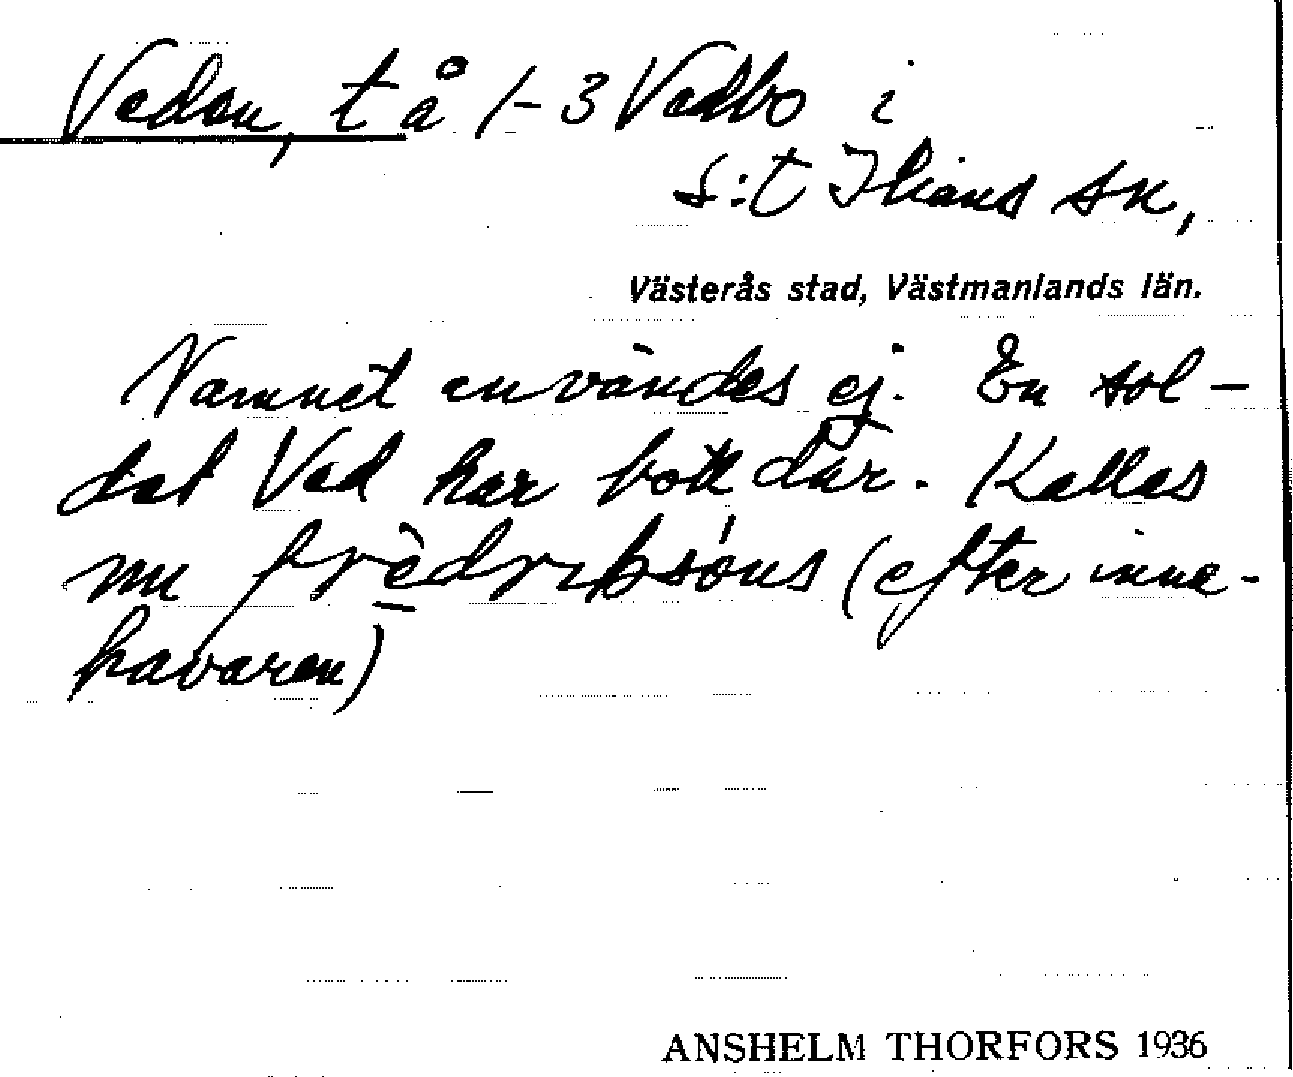 Vedan, t å 1-3 Vedbo i
S:t Ilians sn,
Västerås stad, Västmanlands län.
Namnet användes ej. En sol-
dat Ved har bott där. Kallas
nu frèdriksóns (efter inne-
havaren)
ANSHELM THORFORS 1936